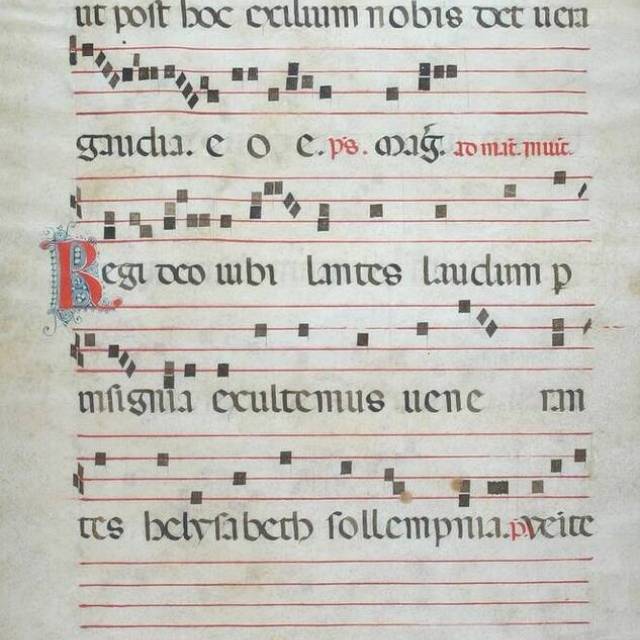 ut post hoc exilium nobis det uera
gaudia. e o e. ps. mag̃. ad mat̃. inuit̃.
Regi deo iubi lantes laudum p
insignia excultemus uene ran
tes helysabeth sollempnia. ps. veite